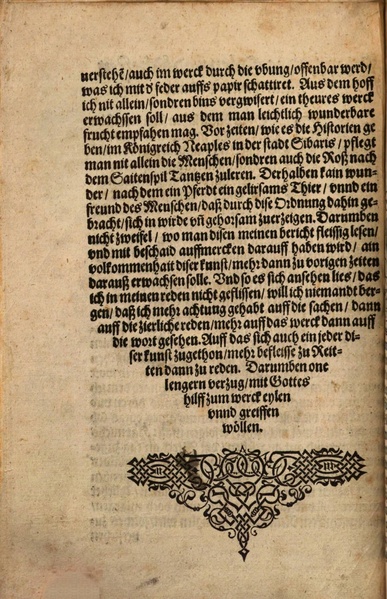 verstehē/auch im werck durch die vbung/offenbar werd/
was ich mit d feder auffs papir schattiret. Aus dem hoff
ich nit allein/sondren bins vergwisert/ein theures werck
erwachssen soll/aus dem man leichtlich wunderbare
frucht empfahen mag. Vor zeiten/wie es die Historien ge
ben/im Königreich Neaples in der stadt Sibaris/pflegt
man nit allein die Menschen/sondren auch die Roß nach
dem Saitenspil Tantzen zuleren. Derhalben kain wun-
der/nach dem ein Pferdt ein gelirsams Thier/vnnd ein
freund des Menschen/daß durch dise Ordnung dahin ge-
bracht/sich in wirde vñ gehorsam zuerzeigen. Darumben
nicht zweifel/wo man disen meinen bericht fleissig lesen/
vnd mit beschaid auffmercken darauff haben wird/ain
volkommenhait diser kunst/mehr dann zu vorigen zeiten
darauß erwachsen solle. Vnd so es sich ansehen lies/das
ich in meinen reden nicht geflissen/will ich niemandt ber-
gen/daß ich mehr achtung gehabt auff die sachen/dann
auff die zierliche reden/mehr auff das werck dann auff
die wort gesehen. Auff das sich auch ein jeder di-
ser kunst zugethon/mehr befleisse zu Reit-
ten dann zu reden. Darumben one
lengern verzug/mit Gottes
hilff zum werck eylen
vnnd greiffen
wöllen.